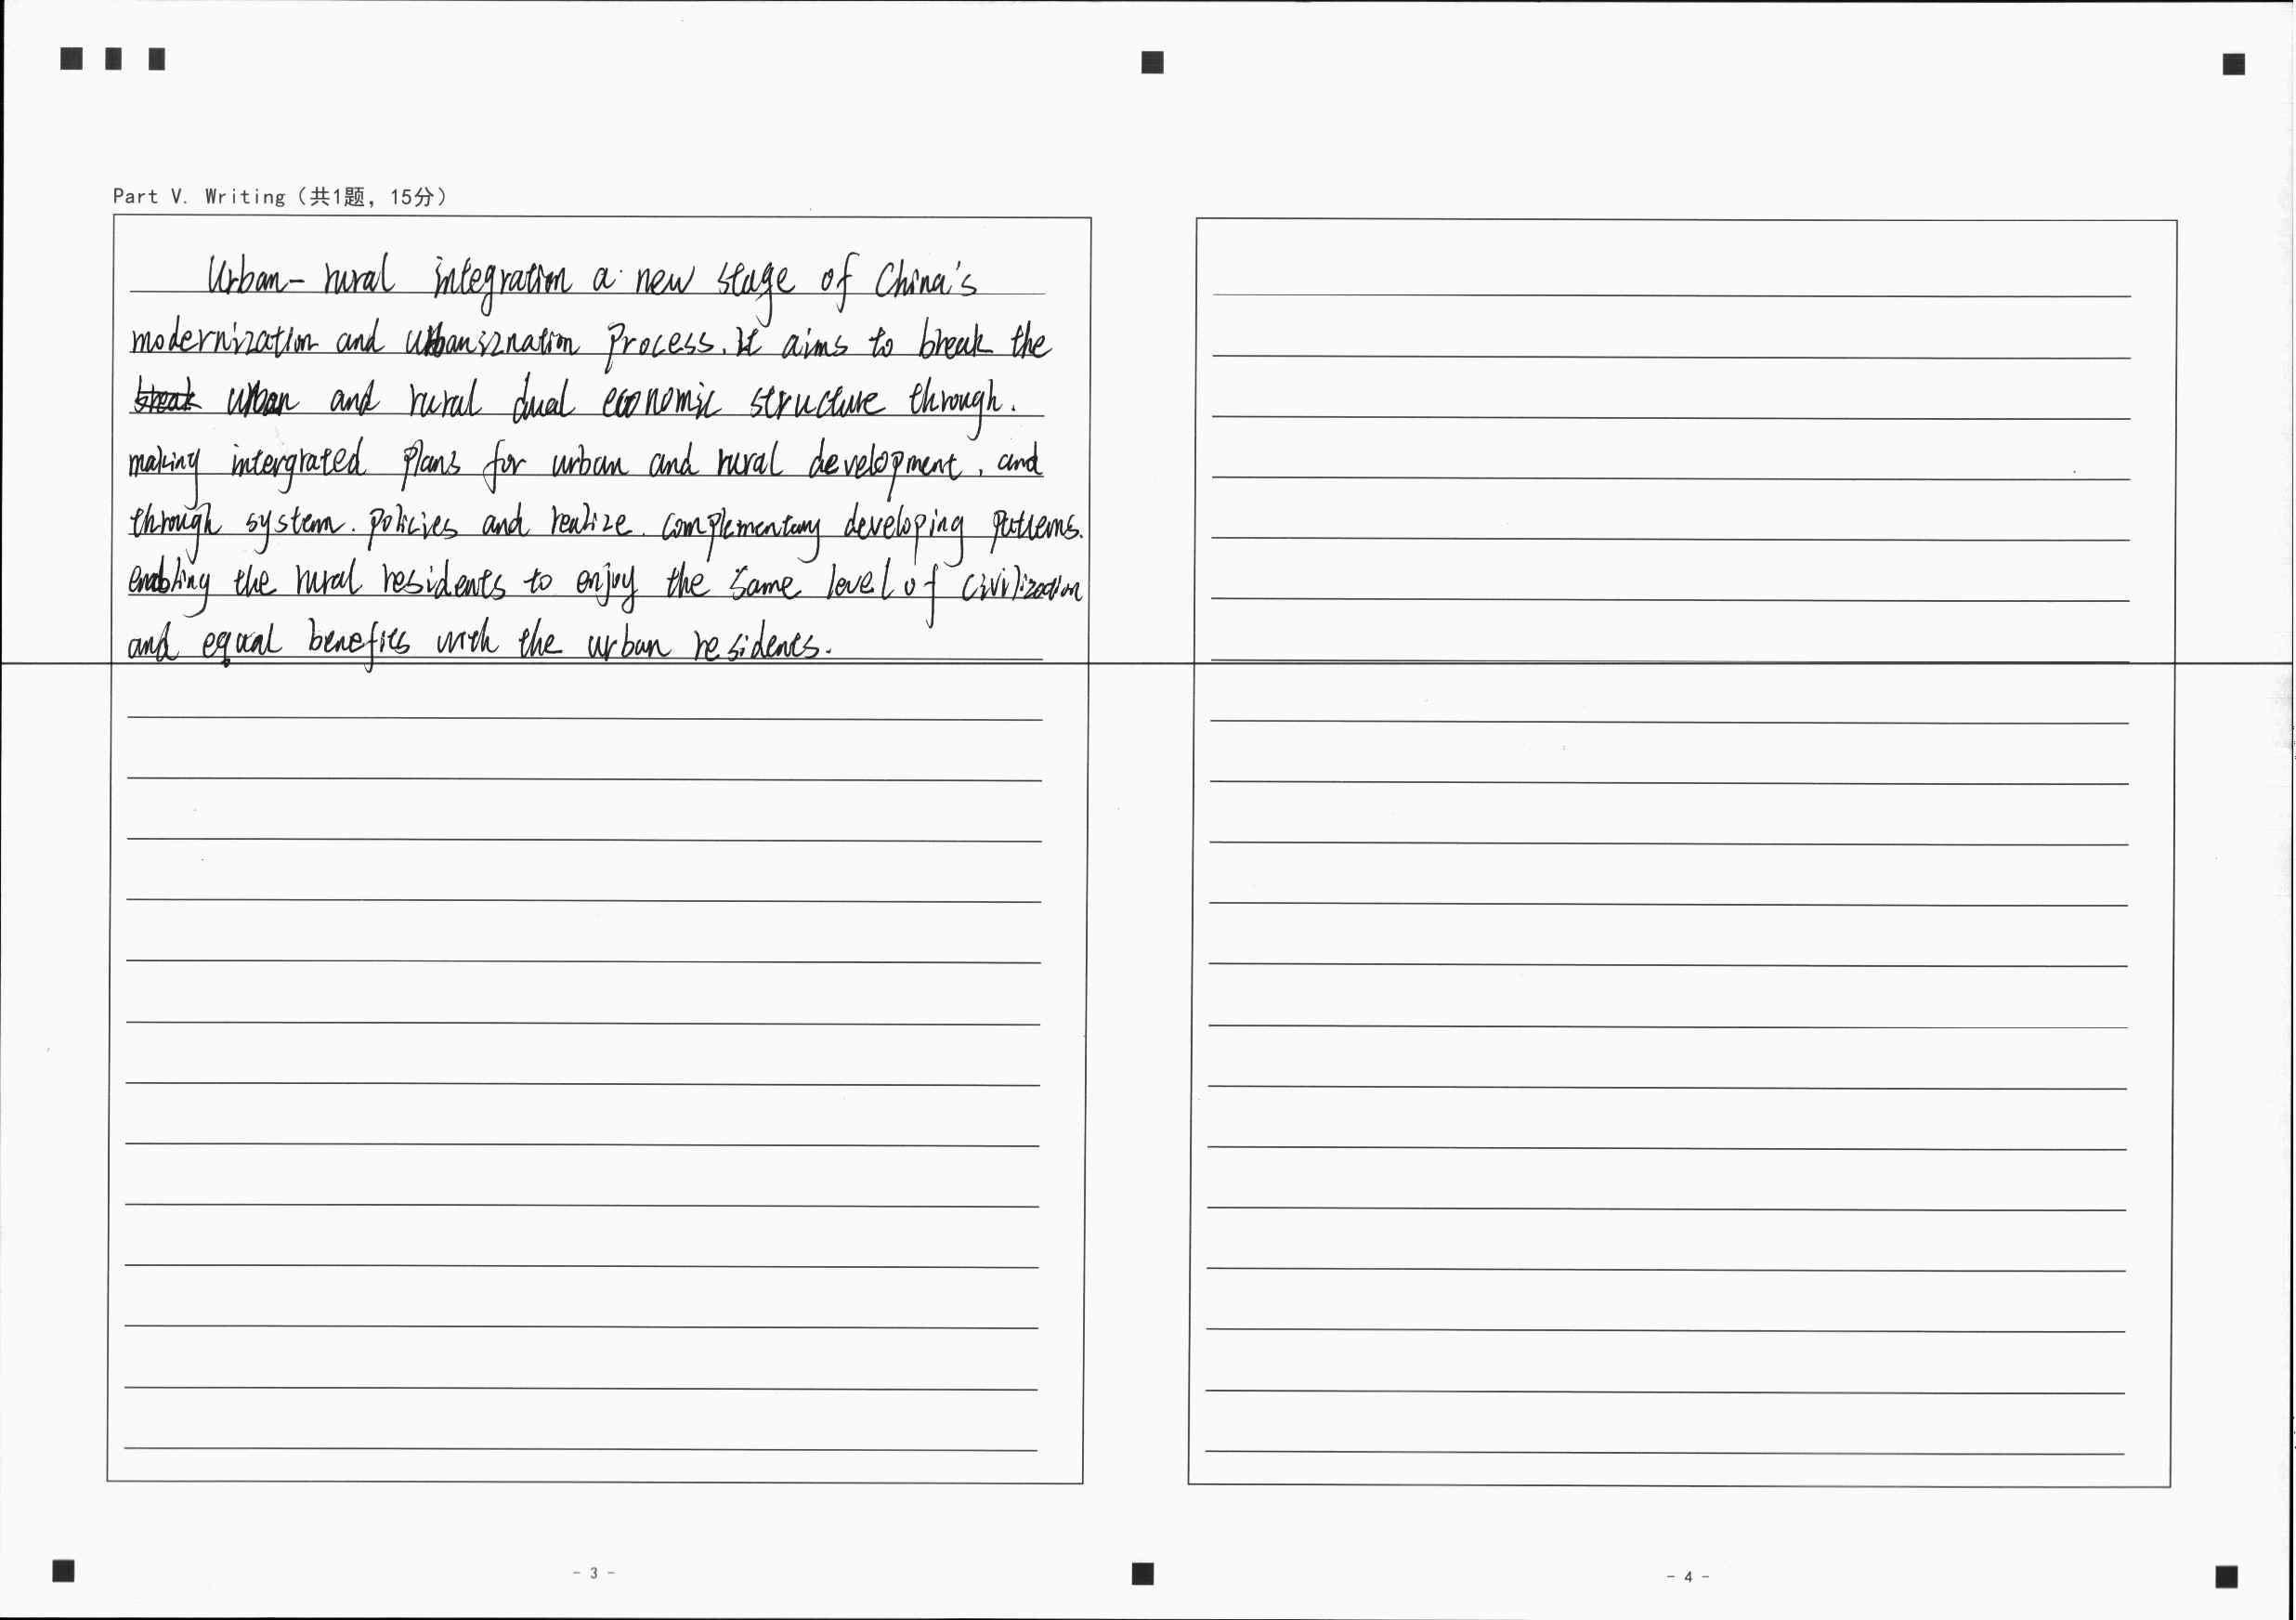 Part V. Writing (共1题, 15分)
Urban-rural integration a new stage of China's
modernization and urbanization process. It aims to break the
break urban and rural dual economic structure through.
making intergrated plans for urban and rural development, and
through system. policies and realize. complementary developing patterns.
enabling the rural residents to enjoy the same level of civilization
and equal benefits with the urban residents.
- 3 -
- 4 -